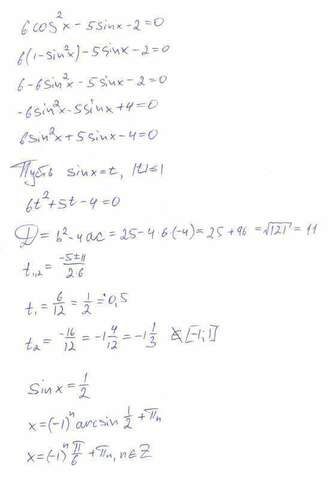 6cos²x - 5sinx - 2 = 0
6(1-sin²x) - 5sinx - 2 = 0
6 - 6sin²x - 5sinx - 2 = 0
-6sin²x - 5sinx + 4 = 0
6sin²x + 5sinx - 4 = 0
Пусть sinx = t, |t| ≤ 1
6t² + 5t - 4 = 0
D = b² - 4ac = 25 - 4·6·(-4) = 25 + 96 = √121 = 11
t₁,₂ = (-5±11)/(2·6)
t₁ = 6/12 = 1/2 = 0,5
t₂ = -16/12 = -1 4/12 = -1 1/3 ∉ [-1;1]
sinx = 1/2
x = (-1)ⁿ arcsin 1/2 + πn
x = (-1)ⁿ π/6 + πn, n ∈ Z